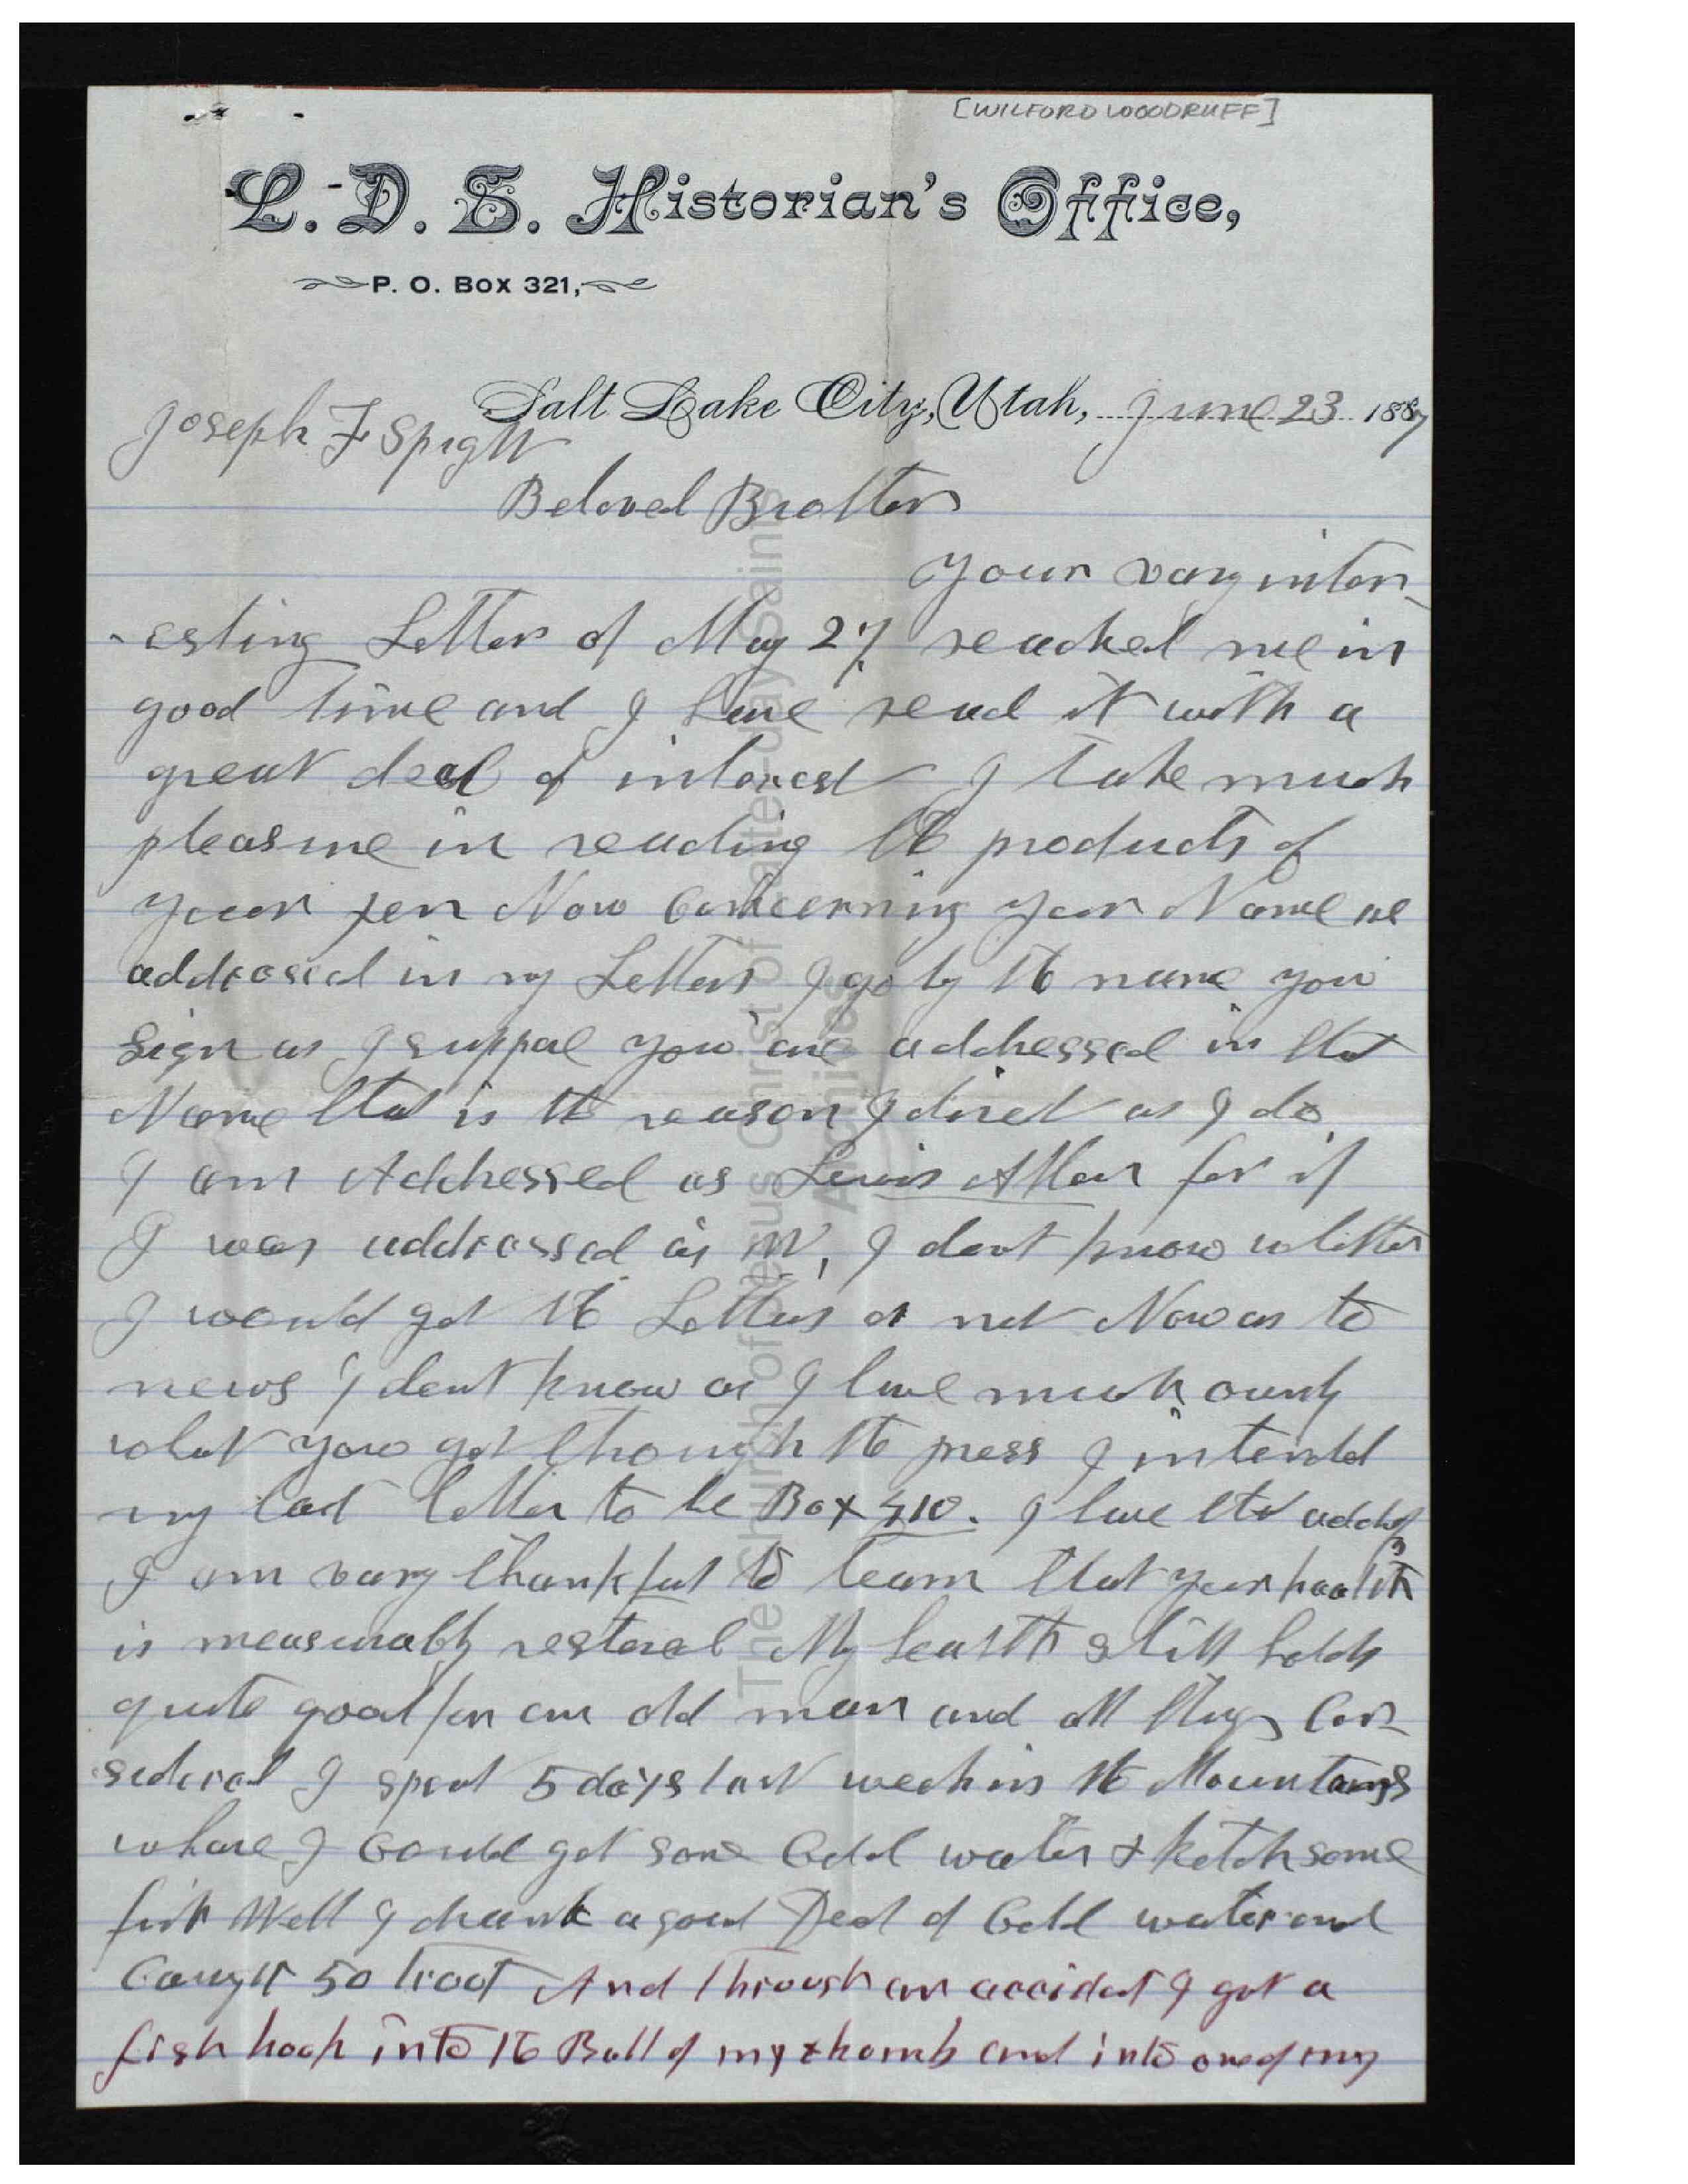 [WILFORD WOODRUFF]
L. D. S. Historian's Office,
P. O. Box 321,
Salt Lake City, Utah, June 23 1887
Joseph F Speight
Beloved Brother
your vary inter-
-esting Letter of May 27 reached me in
good time and I have read it with a
great deal of interest I take much
pleasure in reading the products of
your pen Now Concerning your Name as
addressed in my Letters I go by the name you
Sign as I suppose you are addressed in that
Name that is the reason I direct as I do
I am Addressed as Lewis Allen for if
I was addressed as W, I dont know whether
I would get the Letters or not Now as to
news I dont know as I have much ownly
what you get through the press I intended
my last letter to be Box 410. I have that address
I am vary thankful to learn that your health
is measurably restored My health still holds
quite good for an old man and all things Con-
sidered I spent 5 days last week in the Mountains
whare I Could get some Cold water & ketch some
fish Well I drank a good Deal of Cold water and
Caught 50 trout And through an accident I got a
fish hook into the Ball of my thomb and into one of my
The Church of Jesus Christ of Latter-day Saints
Archives